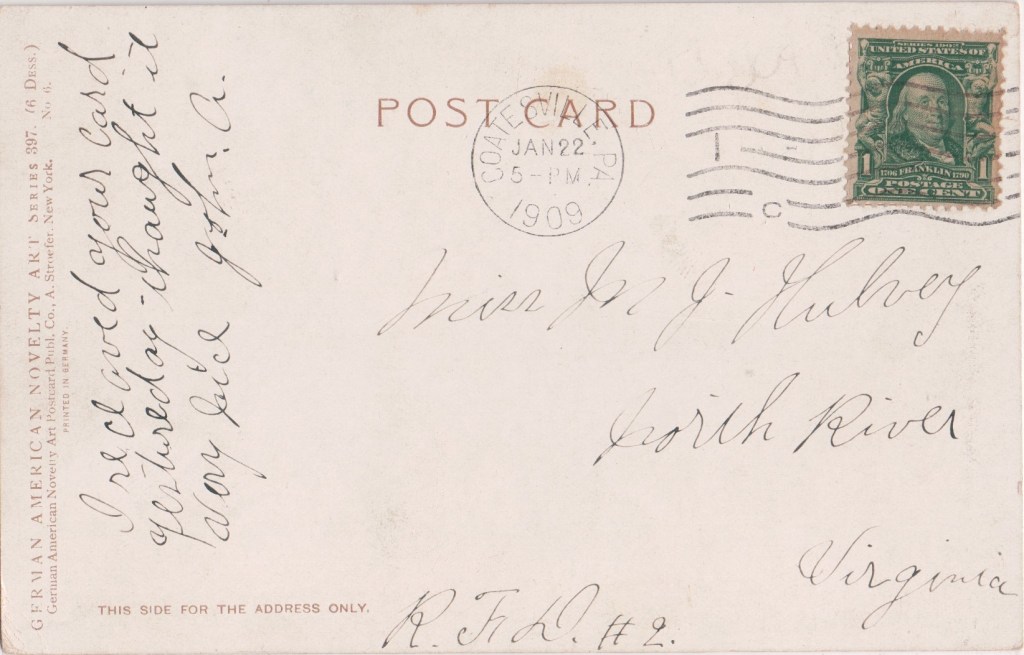 GERMAN AMERICAN NOVELTY ART SERIES 397. (6 DESS.)
German American Novelty Art Postcard Publ. Co., A. Stroefer, New York. No 6.
PRINTED IN GERMANY
I receaved your Card
yestureday - thaught it
Very nice John. A.
POST CARD
COATESVILLE, PA.
JAN 22
5-PM
1909
C
SERIES 1902
UNITED STATES OF
AMERICA
1 1
1706 FRANKLIN 1790
POSTAGE
ONE CENT
Miss M J- Hulvey
North River
Virginia
R. F. D. #2.
THIS SIDE FOR THE ADDRESS ONLY.